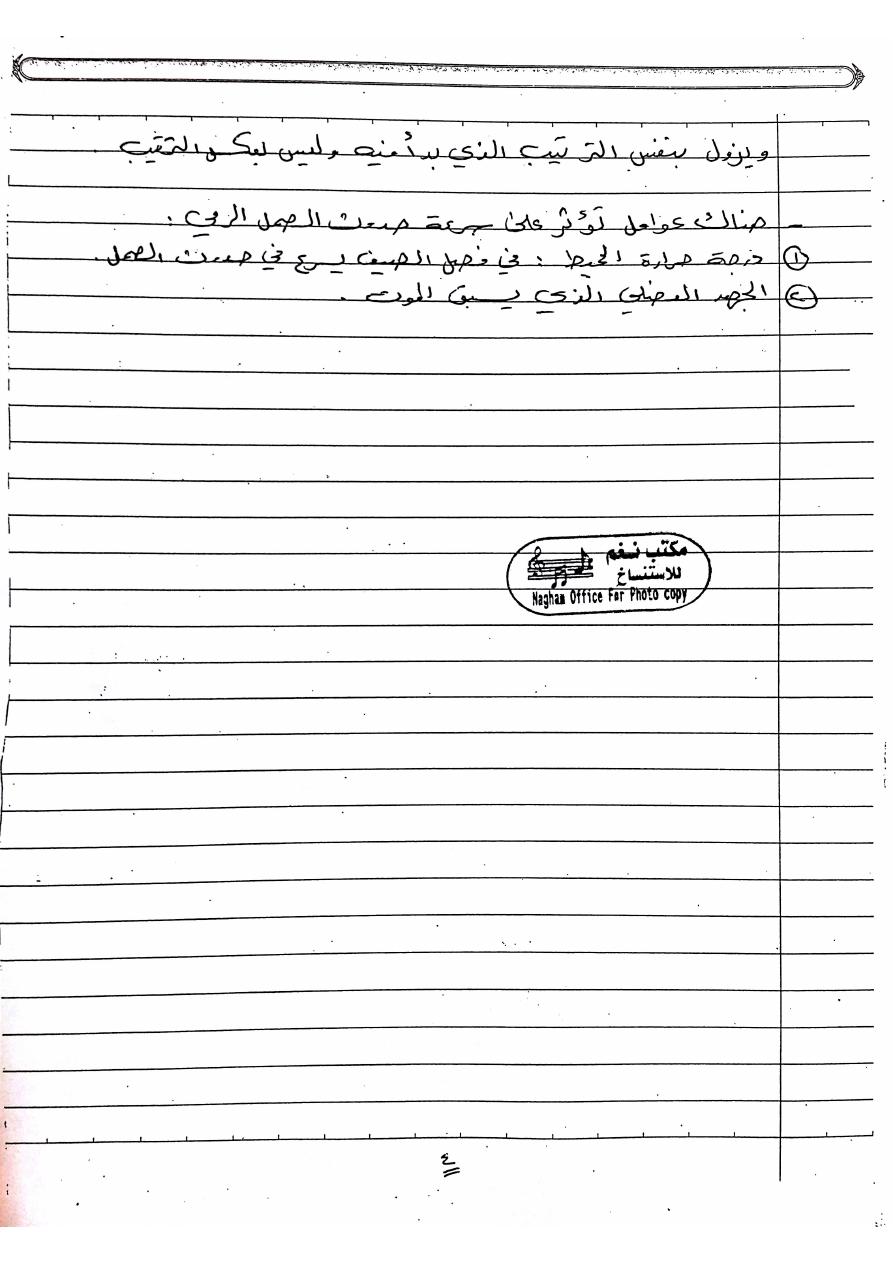 ويزول بنفس الترتيب الذي بدأ منه وليس بعكس الترتيب .
- هناك عوامل تؤثر على سرعة حدوث الصمل الرمي :
① درجة حرارة المحيط : في فصل الصيف يسرع في حدوث الصمل .
② الجهد العضلي الذي يسبق الموت .
مكتب نغم
للاستنساخ
Nagham Office For Photo copy
٤